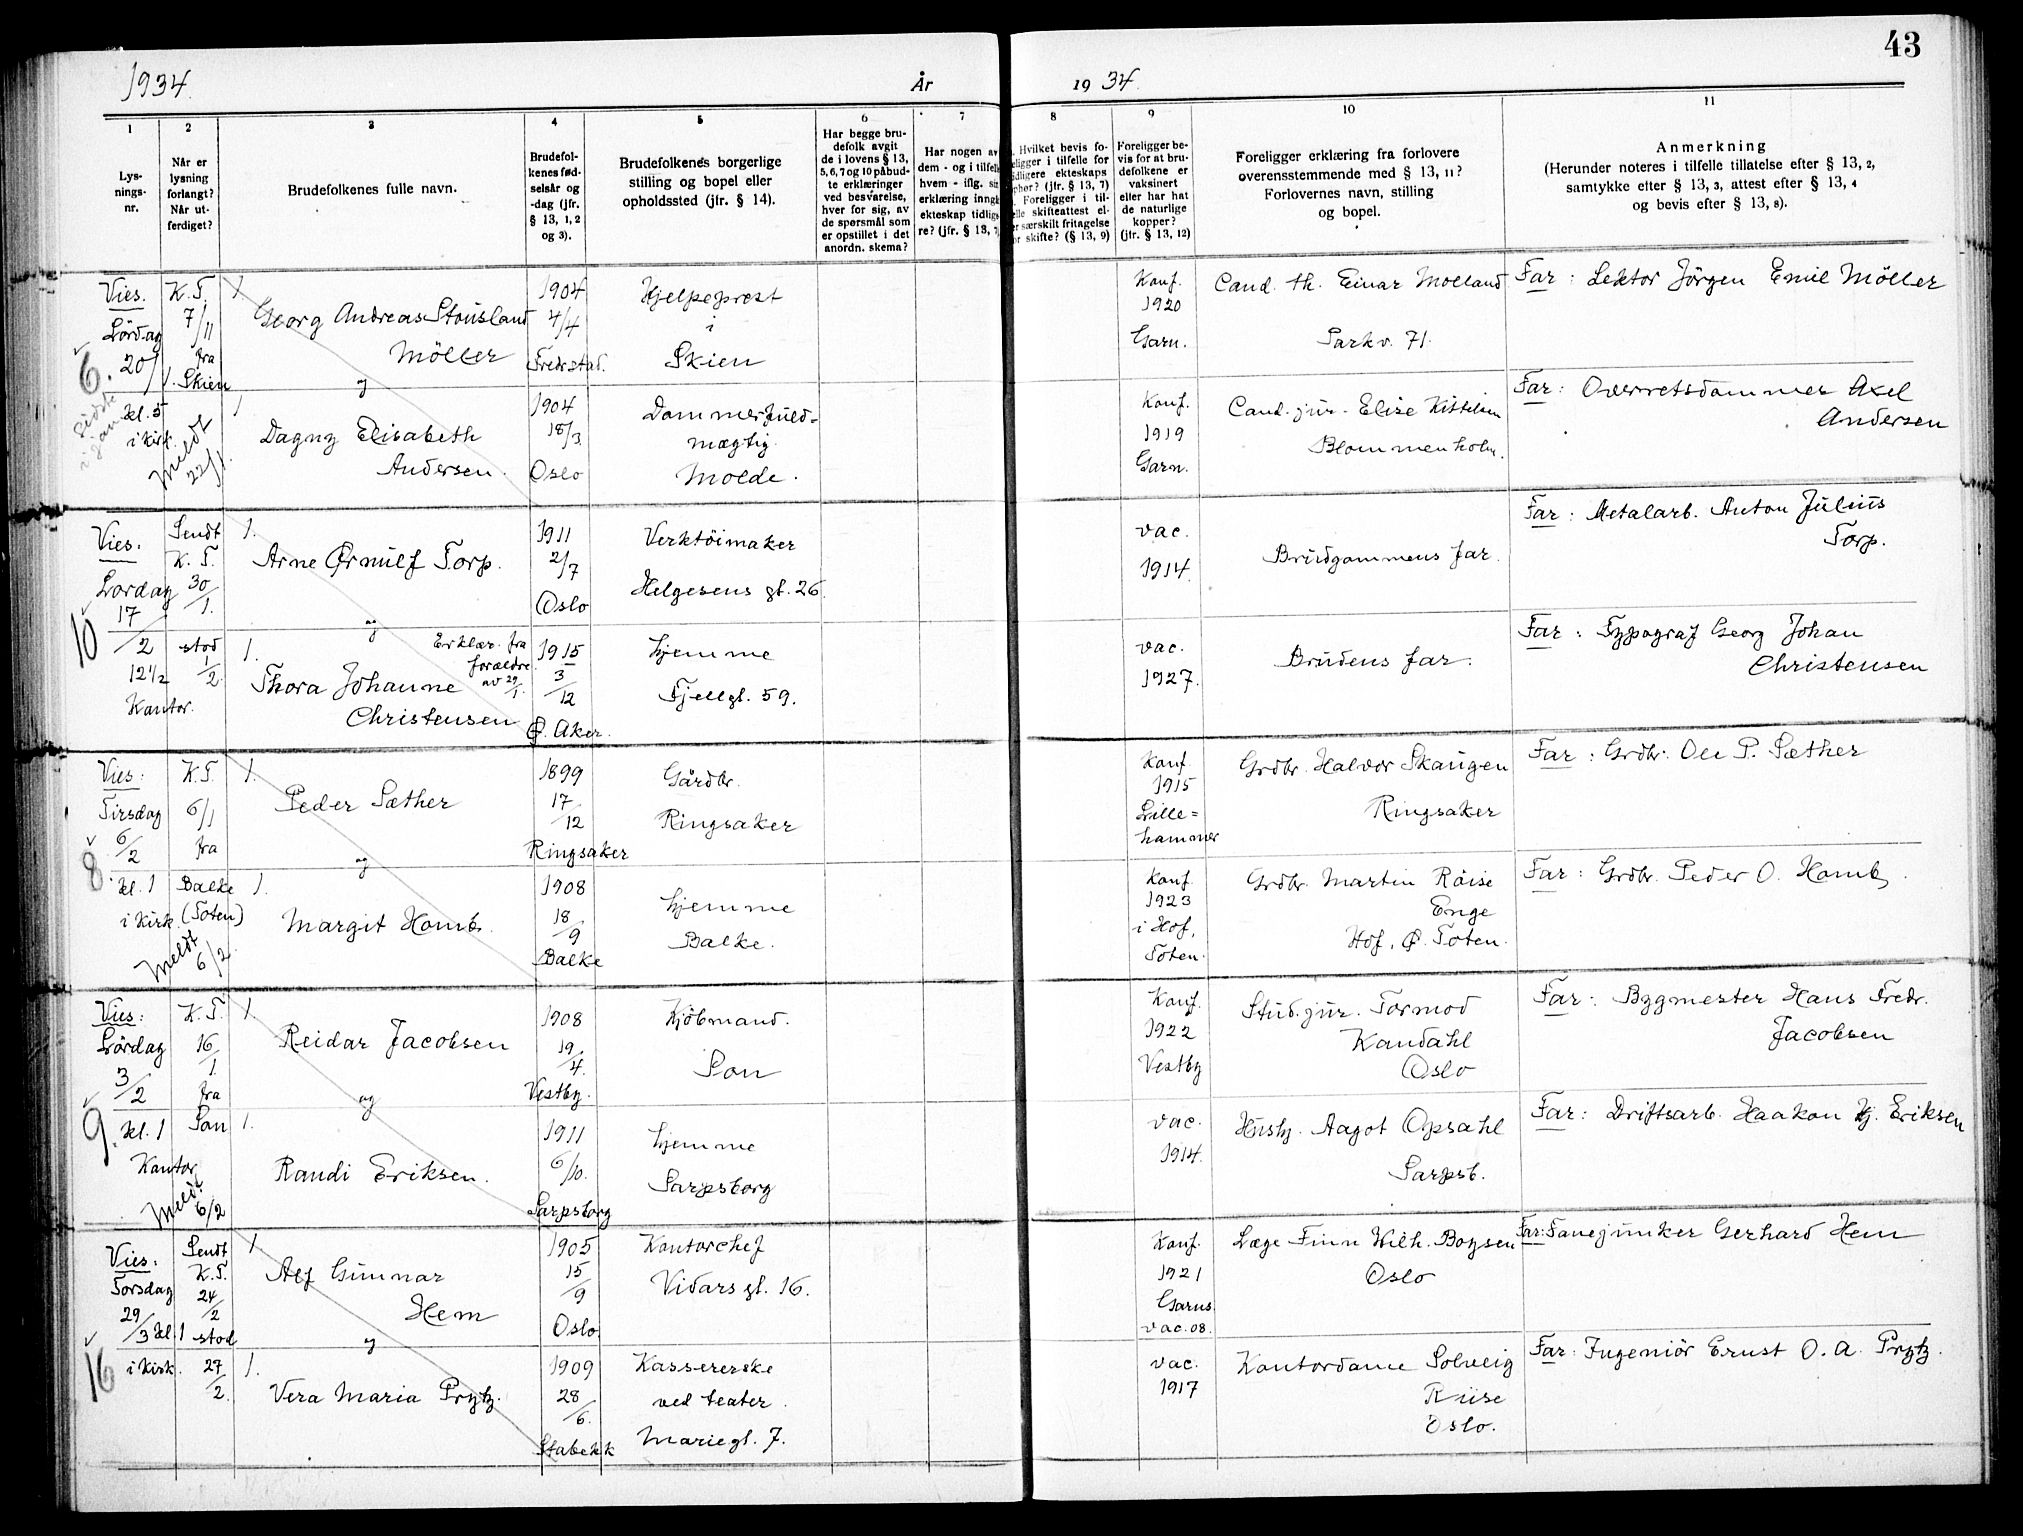 43
1934.
År
19 34.
1
2
3
4
5
6
7
8
9
10
11
Lys-
nings-
nr.
Når er
lysning
forlangt?
Når ut-
ferdiget?
Brudefolkenes fulle navn.
Brudefol-
kenes fød-
selsår og
-dag (jfr.
§ 13, 1, 2
og 3).
Brudefolkenes borgerlige
stilling og bopel eller
opholdssted (jfr. § 14).
Har begge bru-
defolk avgit
de i lovens § 13,
5, 6, 7 og 10 påbud-
te erklæringer
ved besvarelse,
hver for sig, av
de spørsmål som
er opstillet i det
anordn. skema?
Har nogen av
dem - og i tilfelle
hvem - iflg. sin
erklæring inngå
ekteskap tidlige
re? (jfr. § 13, 7
Hvilket bevis fo-
religger i tilfelle for
tidligere ekteskaps
ophør? (jfr. § 13, 7)
Foreligger i til-
felle skifteattest el-
er særskilt fritagelse
for skifte? (§ 13, 9)
Foreligger be-
vis for at bru-
defolkene er
vaksinert
eller har hat
de naturlige
kopper?
(jfr. § 13, 12)
Foreligger erklæring fra forlovere
overensstemmende med § 13, 11?
Forlovernes navn, stilling
og bopel.
Anmerkning
(Herunder noteres i tilfelle tillatelse efter § 13, 2,
samtykke efter § 13, 3, attest efter § 13, 4
og bevis efter § 13, 8).
6.
Vies.
Lördag
20/1.
kl. 5
i kirk.
K.T.
7/11
fra
Skien
Meldt
22/1.
1
Georg Andreas Stousland
Möller
og
1904
4/4
Fredrstad.
Hjelpeprest
i
Skien
Konf.
1920
Garn.
Cand. th. Einar Molland
Parkv. 71.
Far : Lektor Jörgen Emil Möller
1
Dagny Elisabeth
Andersen.
1904
18/3
Oslo
Dommerfuld=
mægtig
Molde.
Konf.
1919
Garn.
Cand. jur. Elise Kittelsen
Blommenholm.
Far : Overretsdommer Axel
Andersen
10
Vies.
Lördag
17/2
12 1/2
Kontor.
Sendt
K.T.
30/1.
stod
1/2.
1.
Arne Ørnulf Torp.
og
1911
2/7
Oslo
Verktöimaker
Helgesens gt. 26.
vac.
1914.
Brudgommens far.
Far : Metalarb. Anton Julius
Torp.
1.
Erklær. fra
forældre
av 29/1.
Thora Johanne
Christensen
1915
3/12
Ø. Aker.
hjemme
Fjellgt. 59.
vac.
1927.
Brudens far.
Far : Typograf Georg Johan
Christensen
8
Vies:
Tirsdag
6/2
kl. 1
i kirk.
K.T.
6/1
fra
Balke
(Toten)
Meldt
6/2.
1.
Peder Sæther
og
1899
17/12
Ringsaker
Gårdbr.
Ringsaker
Konf.
1915
Lille=
hammer
Grdbr. Halvor Skaugen
Ringsaker
Far : Grdbr. Ole P. Sæther
1.
Margit Homb.
1908
18/9
Balke
hjemme
Balke.
Konf.
1923
i Hof,
Toten.
Grdbr. Martin Röise
Enge
Hof, Ø. Toten.
Far : Grdbr. Peder O. Homb.
9.
Vies:
Lördag
3/2
kl. 1
Kontor
K.T.
16/1.
fra
Son
Meldt
6/2
1.
Reidar Jacobsen
og
1908
19/4.
Vestby.
Kjöbmand.
Son
Konf.
1922
Vestby
Stud. jur. Tormod
Kandahl
Oslo
Far : Bygmester Hans Fredr.
Jacobsen
1.
Randi Eriksen.
1911
6/10.
Sarpsborg
hjemme
Sarpsborg
vac.
1914.
Husby. Aagot Opsahl
Sarpsb.
Far : Driftsarb. Haakon Kj. Eriksen
16
Vies:
Torsdag
29/3 kl. 1
i kirk.
Sendt
K.T.
24/2
stod
27/2.
1.
Alf Gunnar
Hem
og
1905
15/9
Oslo
Kontorchef
Vidars gt. 16.
Konf.
1921
Garns.
vac. 08.
Læge Finn Wilh. Boysen
Oslo
Far: Fanejunker Gerhard Hem
1.
Vera Maria Prytz.
1909
28/6.
Stabekk
Kassererske
ved teater.
Mariegt. 7.
vac.
1917
Kontordame Solveig
Riise
Oslo.
Far: Ingeniör Ernst O. A. Prytz.